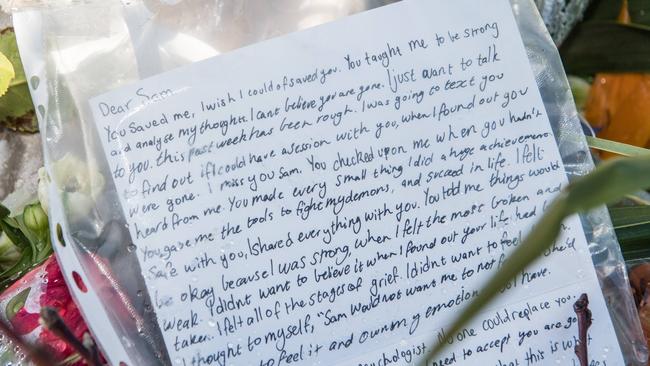 Dear Sam,
You saved me, I wish I could of saved you. You taught me to be strong
d analyse my thoughts. I cant believe you are gone. I just want to talk
to you. this past week has been rough. I was going to text you
to find out if I could have a session with you, when I found out you
were gone. I miss you Sam. You checked upon me when you hadn't
heard from me. You made every small thing I did a huge achievement.
You gave me the tools to fight my demons, and succeed in life. I felt
Safe with you, I shared everything with you. You told me things would
be okay because I was strong, when I felt the most broken and
weak. I didn't want to believe it when I found out your life had b
taken. I felt all of the stages of grief. I didn't want to feel
I thought to myself, "Sam would not want me to not f she'd
to feel it and own my emotion have.
psychologist. No one could replace you.
need to accept you are go
what this is what